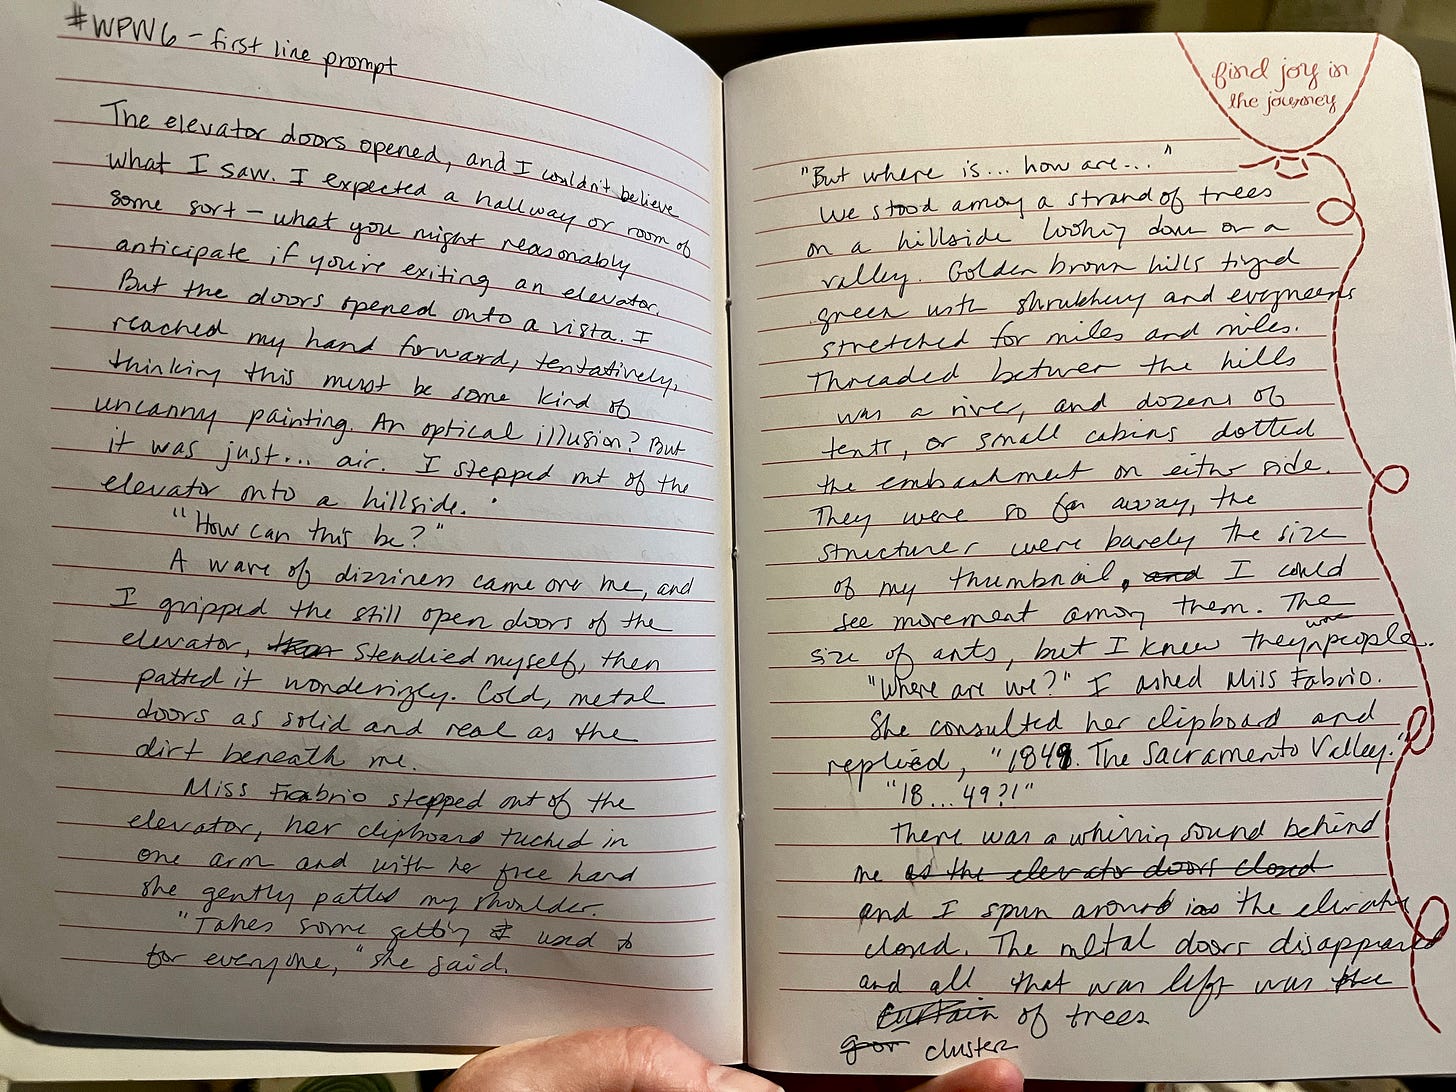 #WPW6 - first line prompt
The elevator doors opened, and I couldn't believe
what I saw. I expected a hallway or room of
some sort - what you might reasonably
anticipate if you're exiting an elevator.
But the doors opened onto a vista. I
reached my hand forward, tentatively,
thinking this must be some kind of
uncanny painting. An optical illusion? But
it was just... air. I stepped out of the
elevator onto a hillside.
"How can this be?"
A wave of dizziness came over me, and
I gripped the still open doors of the
elevator, steadied myself, then
patted it wonderingly. Cold, metal
doors as solid and real as the
dirt beneath me.
Miss Fabrio stepped out of the
elevator, her clipboard tucked in
one arm and with her free hand
she gently patted my shoulder.
"Takes some getting used to
for everyone," she said.
find joy in
the journey
"But where is... how are..."
We stood among a strand of trees
on a hillside looking down on a
valley. Golden brown hills tinged
green with shrubbery and evergreens
stretched for miles and miles.
Threaded between the hills
was a river, and dozens of
tents, or small cabins dotted
the embankment on either side.
They were so far away, the
structures were barely the size
of my thumbnail, and I could
see movement among them. The
size of ants, but I knew they were people.
"Where are we?" I asked Miss Fabrio.
She consulted her clipboard and
replied, "1849. The Sacramento Valley."
"18...49?!"
There was a whirring sound behind
me as the elevator doors closed
and I spun around as the elevator
closed. The metal doors disappeared
and all that was left was the
curtain of trees
cluster